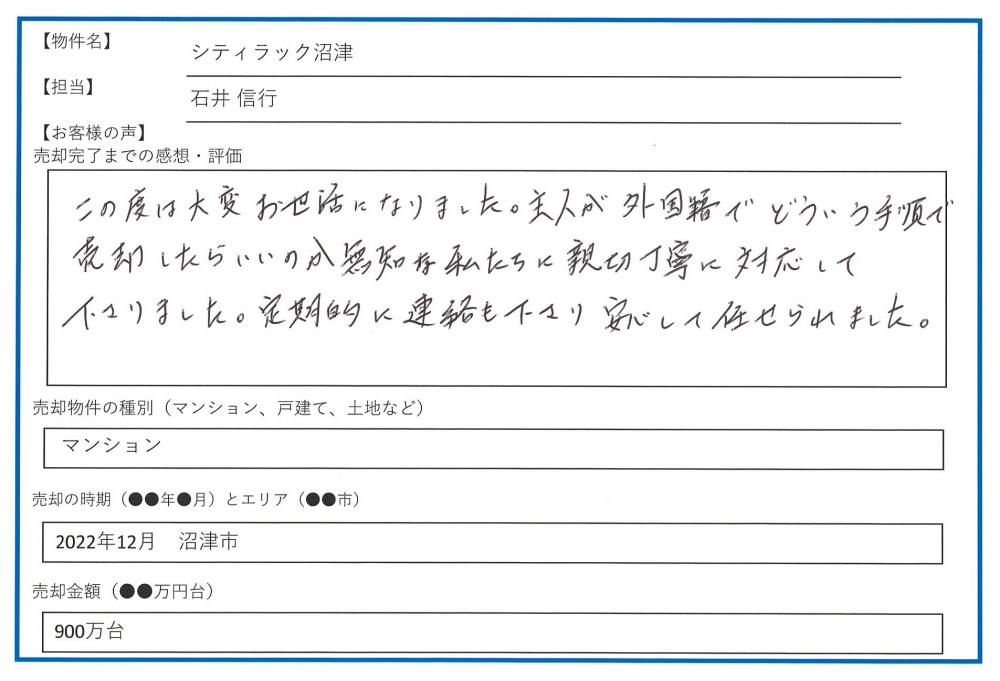 【物件名】
シティラック沼津
【担当】
石井 信行
【お客様の声】
売却完了までの感想・評価
この度は大変お世話になりました。主人が外国籍でどういう手順で
売却したらいいのか無知な私たちに親切丁寧に対応して
下さりました。定期的に連絡も下さり安心して任せられました。
売却物件の種別（マンション、戸建て、土地など）
マンション
売却の時期（●●年●月）とエリア（●●市）
2022年12月 沼津市
売却金額（●●万円台）
900万台